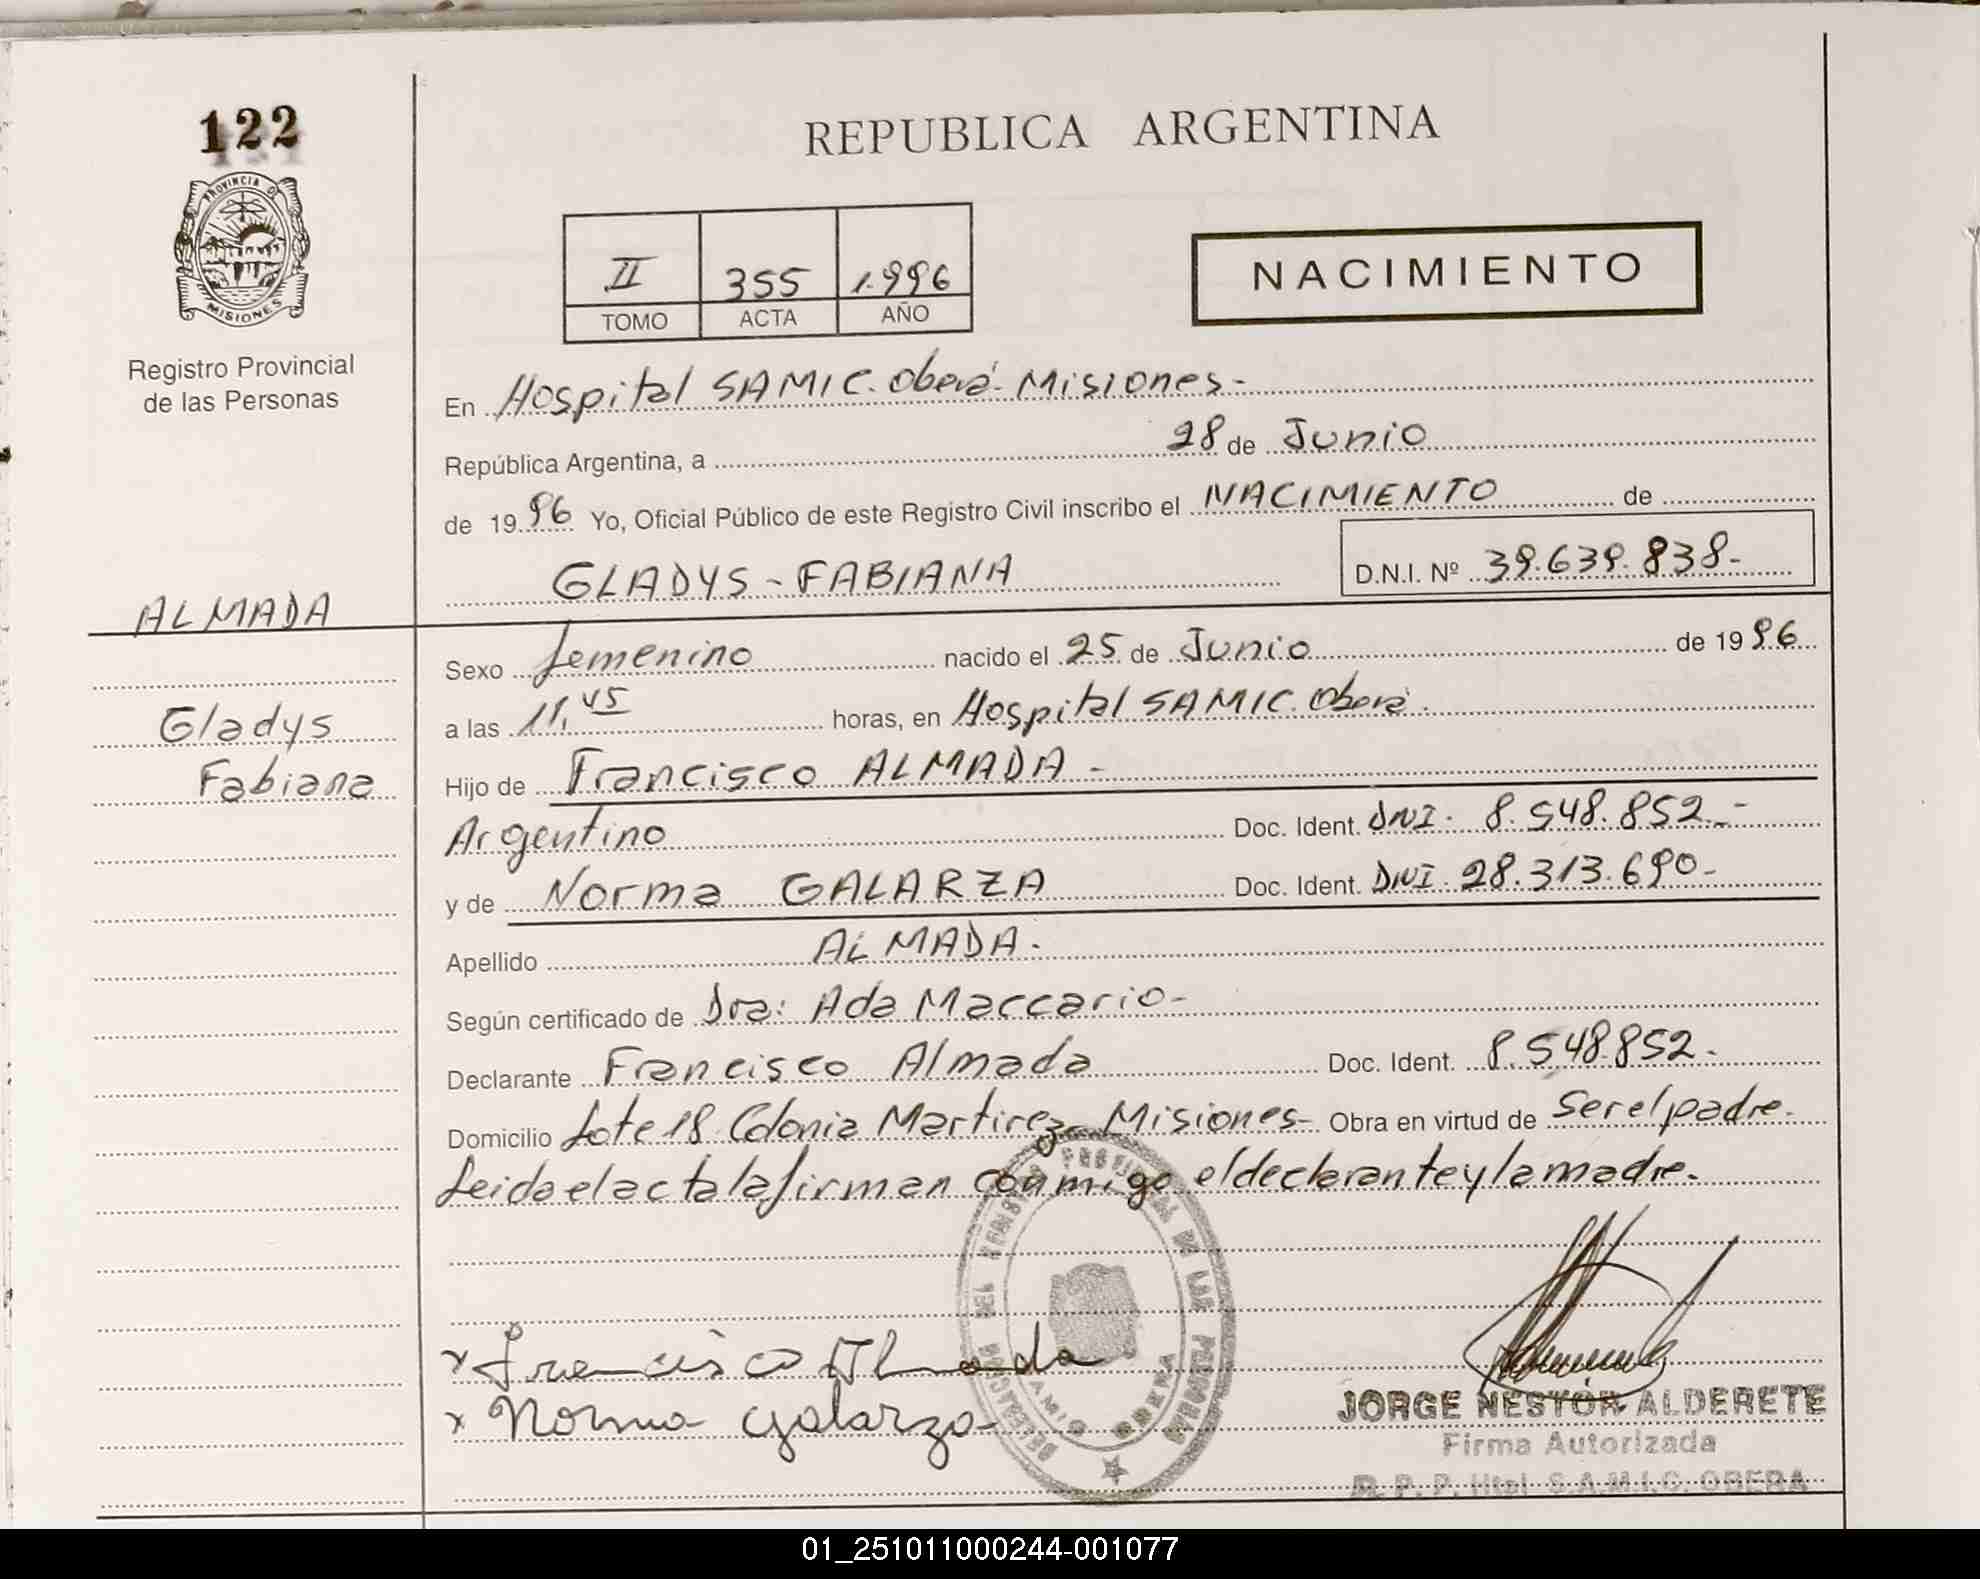 122
REPUBLICA ARGENTINA
PROVINCIA DE
MISIONES
Registro Provincial
de las Personas
II 355 1.996
TOMO ACTA AÑO
NACIMIENTO
En Hospital SAMIC. Oberá- Misiones-
República Argentina, a 28 de Junio
de 1996 Yo, Oficial Público de este Registro Civil inscribo el NACIMIENTO de
GLADYS - FABIANA D.N.I. Nº 39.639.838-
ALMADA
Gladys
Fabiana
Sexo femenino nacido el 25 de Junio de 1996
a las 11,45 horas, en Hospital SAMIC. Oberá.
Hijo de Francisco ALMADA -
Argentino Doc. Ident. DNI. 8.548.852.-
y de Norma GALARZA Doc. Ident. DNI. 28.313.690-
Apellido ALMADA.
Según certificado de Dra: Ada Maccario-
Declarante Francisco Almada Doc. Ident. 8.548.852.
Domicilio Lote 18. Colonia Martirez- Misiones- Obra en virtud de Ser el padre.
Leida el acta la firman conmigo el declarante y la madre.
x Francisco Almada
x Norma galarza-
JORGE NESTOR ALDERETE
Firma Autorizada
R. P. P. Htal S.A.M.I.C. OBERA
01_251011000244-001077